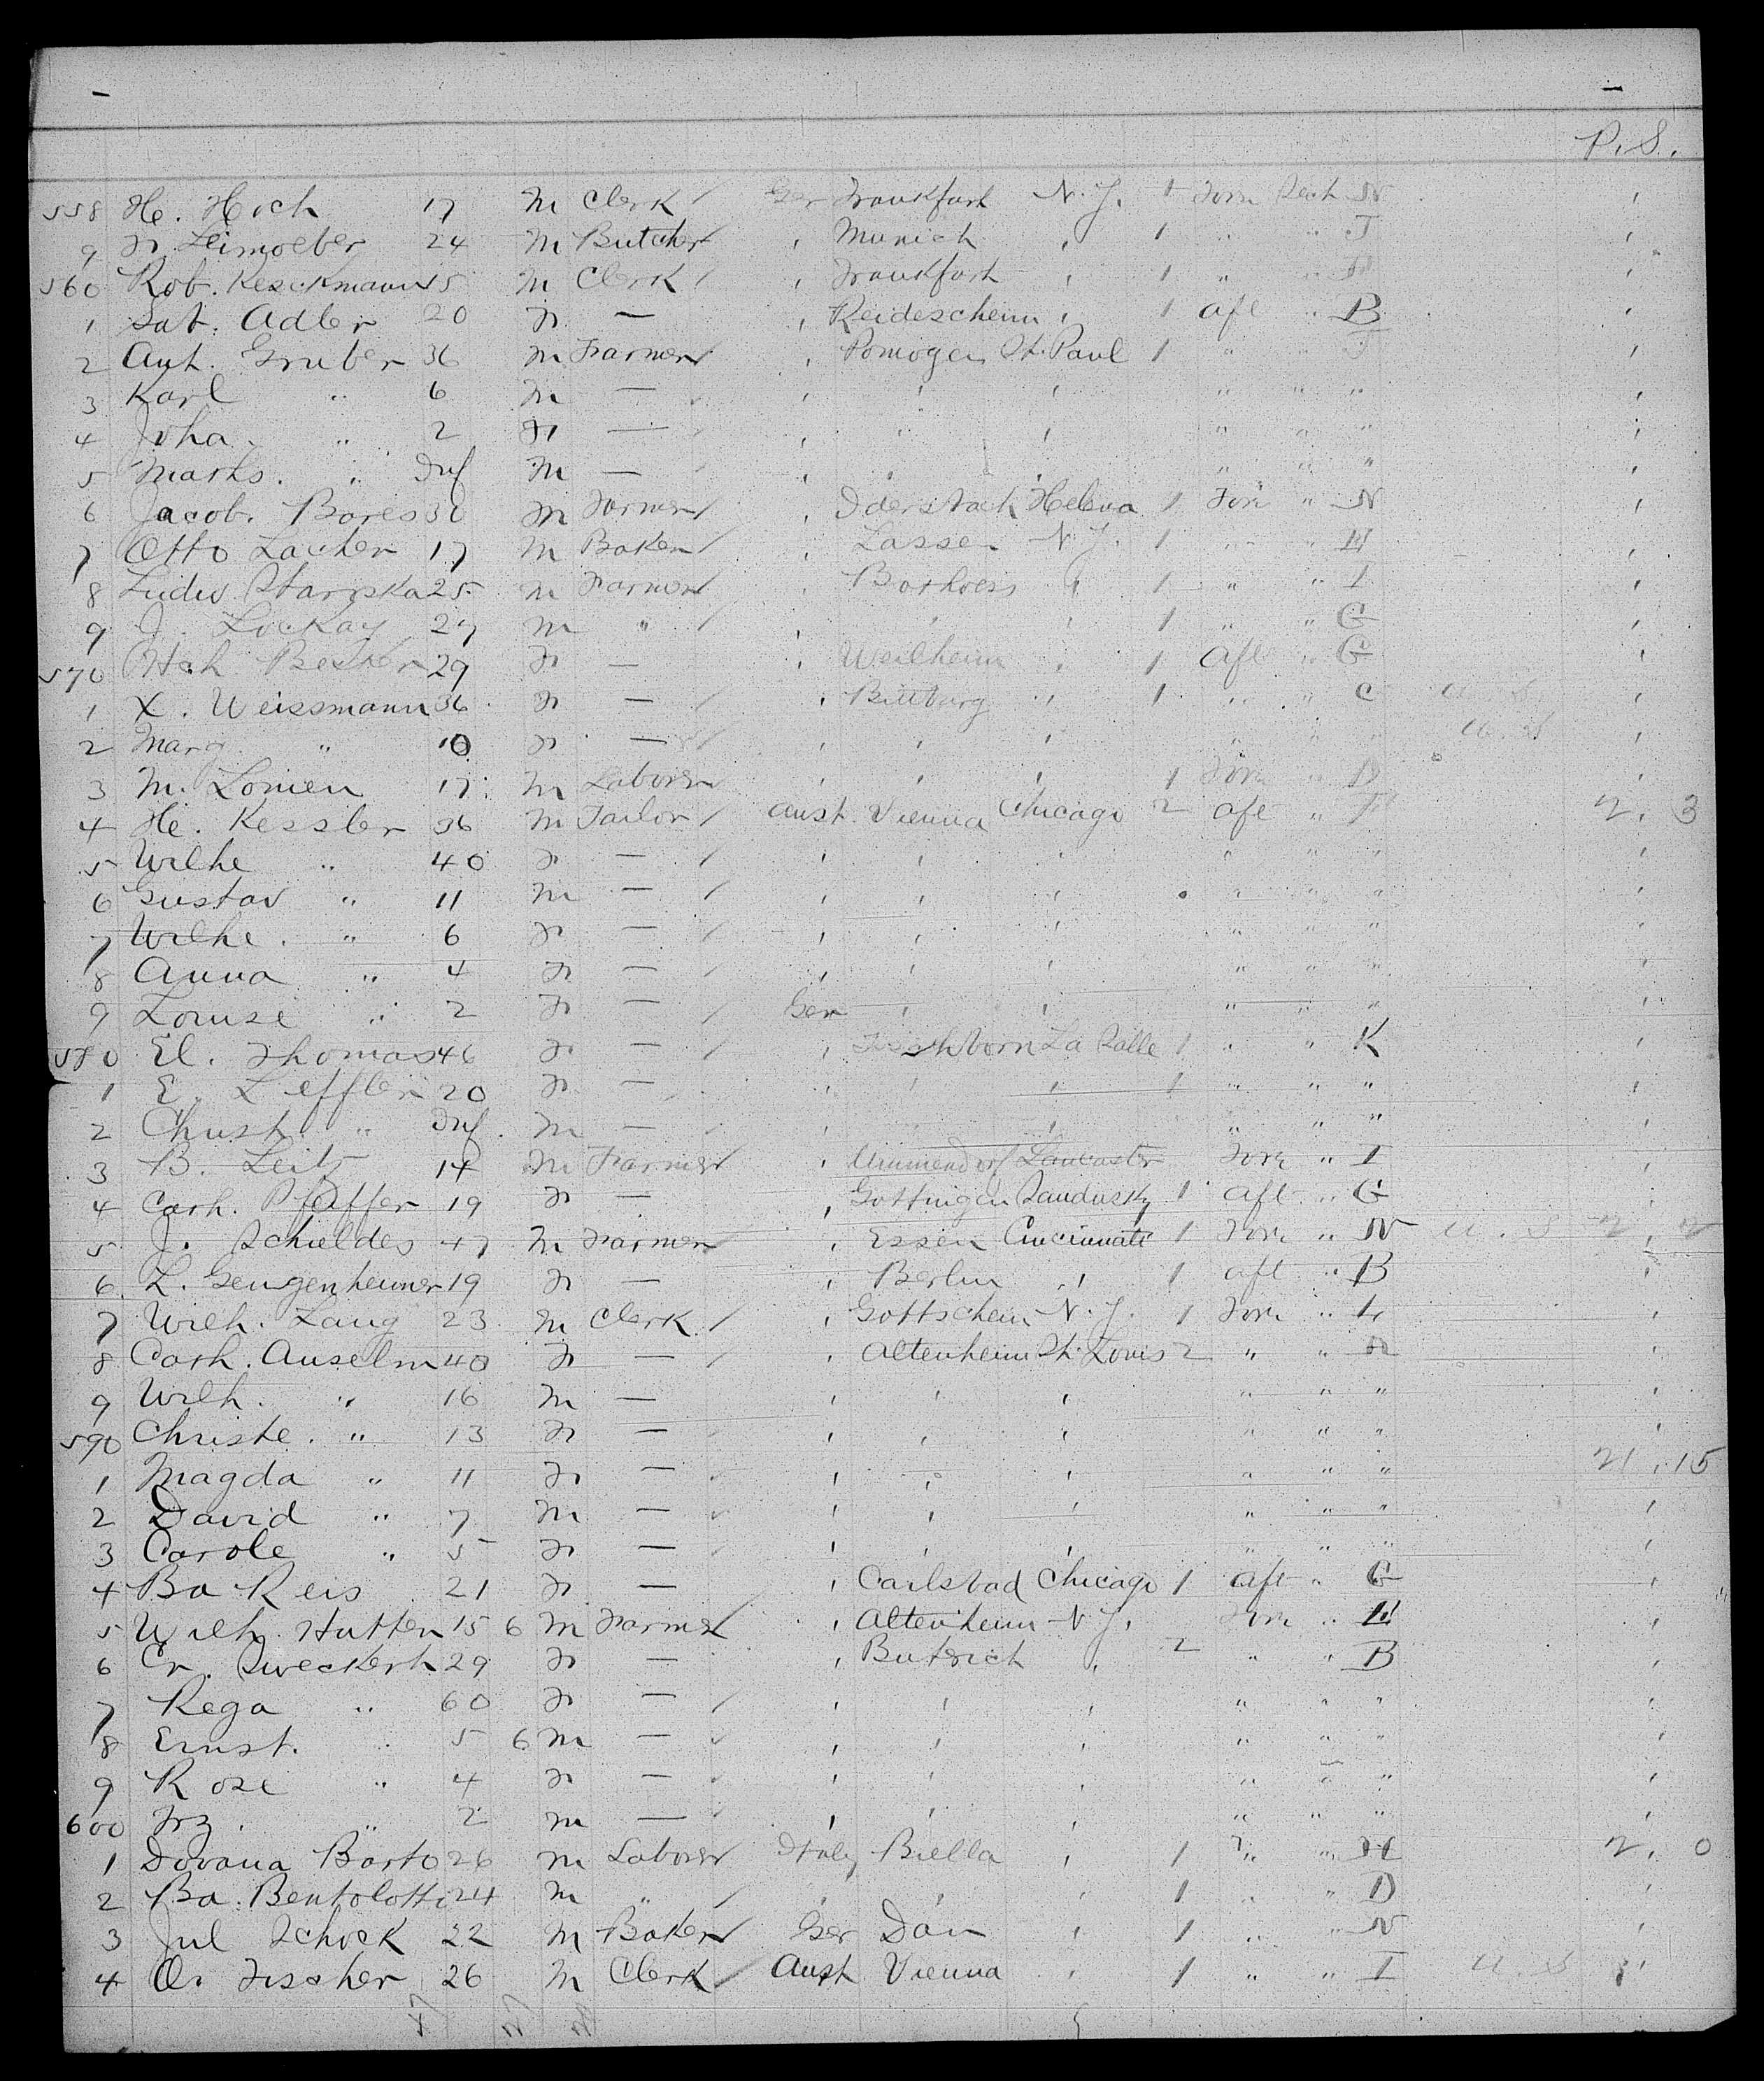 P. S.
558 He. Hoch 17 M Clerk Ger Frankfurt N.Y. 1 Forw Deck N
9 Fr. Leimoeber 24 M Butcher , Munich , 1 " " J
560 Rob. Keschmann 15 M Clerk , Frankfurt , 1 " "
1 Sab. Adler 20 F — , Reidescheim , 1 aft " B
2 Ant. Gruber 36 M Farmer , Pomogen St. Paul 1 " "
3 Karl " 6 M — , , , " " "
4 Joha. " 2 F — , " , " " "
5 Marks. " Inf M — , , , " " "
6 Jacob. Bores 30 M Farmer , Iderstach Helena 1 Forw " N
7 Otto Lacher 17 M Baker , Lassen N.Y. 1 " " E
8 Ludw. Starpska 25 M Farmer , Borhoess , 1 " " I
9 J. Lockay 27 M " , , , 1 " " G
570 Bester 29 F — , Weilheim , 1 aft " G
1 X. Weissmann 36 F — , Bittburg " 1 " " C U.S.
2 Marg. " 10 F — , , , " " " U.S
3 M. Lonien 17 M Laborer , , , 1 Forw " D
4 He. Kessler 36 M Tailor Aust. Vienna Chicago 2 aft " F 2, 3
5 Wilhe " 40 F — , , , " " "
6 Gustav " 11 M — , , , " " "
7 Wilhe. " 6 F — , , , " " "
8 Anna " 4 F — , , , " " "
9 Louise " 2 F — Ger , , " " "
580 El. Thomas 46 F — , La Salle 1 " " K
1 E. Leffler 20 F — , , , 1 " " "
2 Christ. " Inf. M — , , , " " "
3 B. Leitz 14 M Farmer , Ummendorf Lancaster Forw " I
4 Cath. Pfaffer 19 F — , Gottingen Sandusky 1 aft " G
5 J. Schieldes 47 M Farmer , Essen Cincinnati 1 Forw " N U.S 2, 2
6. L. Gengenheimer 19 F — , Berlin , 1 aft " B
7 Wilh. Lang 23 M Clerk , Gottschein N.Y. 1 Forw " L
8 Cath. Anselm 40 F — , Altenheim St. Louis 2 " "
9 Wilh. " 16 M — , , , " " "
590 Christe. " 13 F — , , , " " "
1 Magda " 11 F — , , , " " " 21, 15
2 David " 7 M — , , , " " "
3 Carole " 5 F — , , , " " "
4 Ba Reis 21 F — , Carlstad Chicago 1 aft " G
5 Wilh. Hutten 15 6 M Farmer , Altenheim N.Y. Forw " E
6 Cr. Sweckert 29 F — , Butrich , 2 " " B
7 Rega " 60 F — , , , " " "
8 Ernst. " 5 6 M — , , , " " "
9 Rose " 4 F — , , , " " "
600 Frz. " 2 M — , , , " " "
1 Dovana Barto 26 M Laborer Italy Biella , 1 " " H 2, 0
2 Ba. Bentolotti 24 M " , , , 1 " " D
3 Jul Schock 22 M Baker Ger Dan , 1 " " N
4 O. Fischer 26 M Clerk Aust Vienna , 1 " " I U S